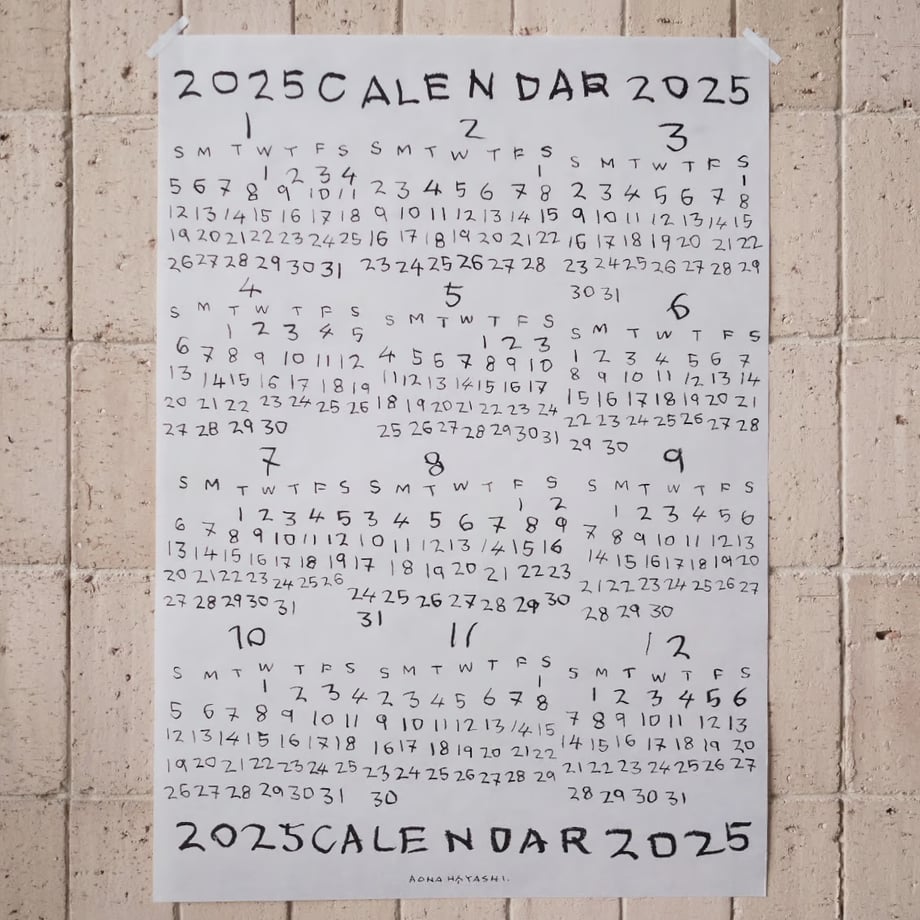 2025 CALENDAR 2025
1
S M T W T F S
1 2 3 4
5 6 7 8 9 10 11
12 13 14 15 16 17 18
19 20 21 22 23 24 25
26 27 28 29 30 31
2
S M T W T F S
1
2 3 4 5 6 7 8
9 10 11 12 13 14 15
16 17 18 19 20 21 22
23 24 25 26 27 28
3
S M T W T F S
1
2 3 4 5 6 7 8
9 10 11 12 13 14 15
16 17 18 19 20 21 22
23 24 25 26 27 28 29
30 31
4
S M T W T F S
1 2 3 4 5
6 7 8 9 10 11 12
13 14 15 16 17 18 19
20 21 22 23 24 25 26
27 28 29 30
5
S M T W T F S
1 2 3
4 5 6 7 8 9 10
11 12 13 14 15 16 17
18 19 20 21 22 23 24
25 26 27 28 29 30 31
6
S M T W T F S
1 2 3 4 5 6 7
8 9 10 11 12 13 14
15 16 17 18 19 20 21
22 23 24 25 26 27 28
29 30
7
S M T W T F S
1 2 3 4 5
6 7 8 9 10 11 12
13 14 15 16 17 18 19
20 21 22 23 24 25 26
27 28 29 30 31
8
S M T W T F S
1 2
3 4 5 6 7 8 9
10 11 12 13 14 15 16
17 18 19 20 21 22 23
24 25 26 27 28 29 30
31
9
S M T W T F S
1 2 3 4 5 6
7 8 9 10 11 12 13
14 15 16 17 18 19 20
21 22 23 24 25 26 27
28 29 30
10
S M T W T F S
1 2 3 4
5 6 7 8 9 10 11
12 13 14 15 16 17 18
19 20 21 22 23 24 25
26 27 28 29 30 31
11
S M T W T F S
1
2 3 4 5 6 7 8
9 10 11 12 13 14 15
16 17 18 19 20 21 22
23 24 25 26 27 28 29
30
12
S M T W T F S
1 2 3 4 5 6
7 8 9 10 11 12 13
14 15 16 17 18 19 20
21 22 23 24 25 26 27
28 29 30 31
2025 CALENDAR 2025
AONA HAYASHI.